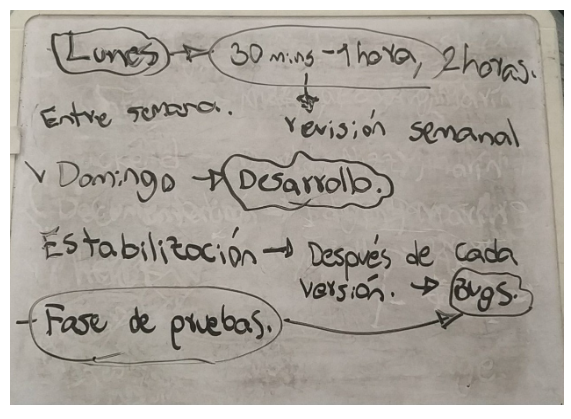 Lunes → 30 mins - 1 hora, 2 horas.
Entre semana.
revisión semanal
Domingo → Desarrollo.
Estabilización → Después de cada
versión. → Bugs.
- Fase de pruebas.